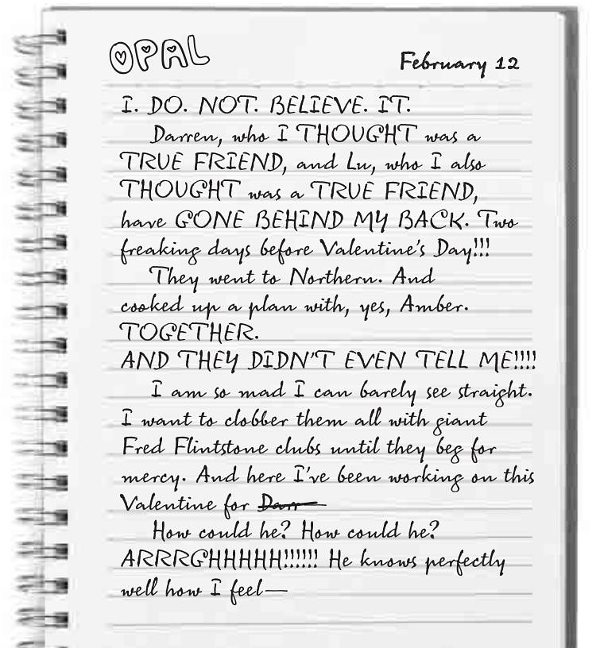 OPAL
February 12
I. DO. NOT. BELIEVE. IT.
Darren, who I THOUGHT was a
TRUE FRIEND, and Lu, who I also
THOUGHT was a TRUE FRIEND,
have GONE BEHIND MY BACK. Two
freaking days before Valentine's Day!!!
They went to Northern. And
cooked up a plan with, yes, Amber.
TOGETHER.
AND THEY DIDN'T EVEN TELL ME!!!!
I am so mad I can barely see straight.
I want to clobber them all with giant
Fred Flintstone clubs until they beg for
mercy. And here I've been working on this
Valentine for Darr
How could he? How could he?
ARRRGHHHHH!!!!!! He knows perfectly
well how I feel—